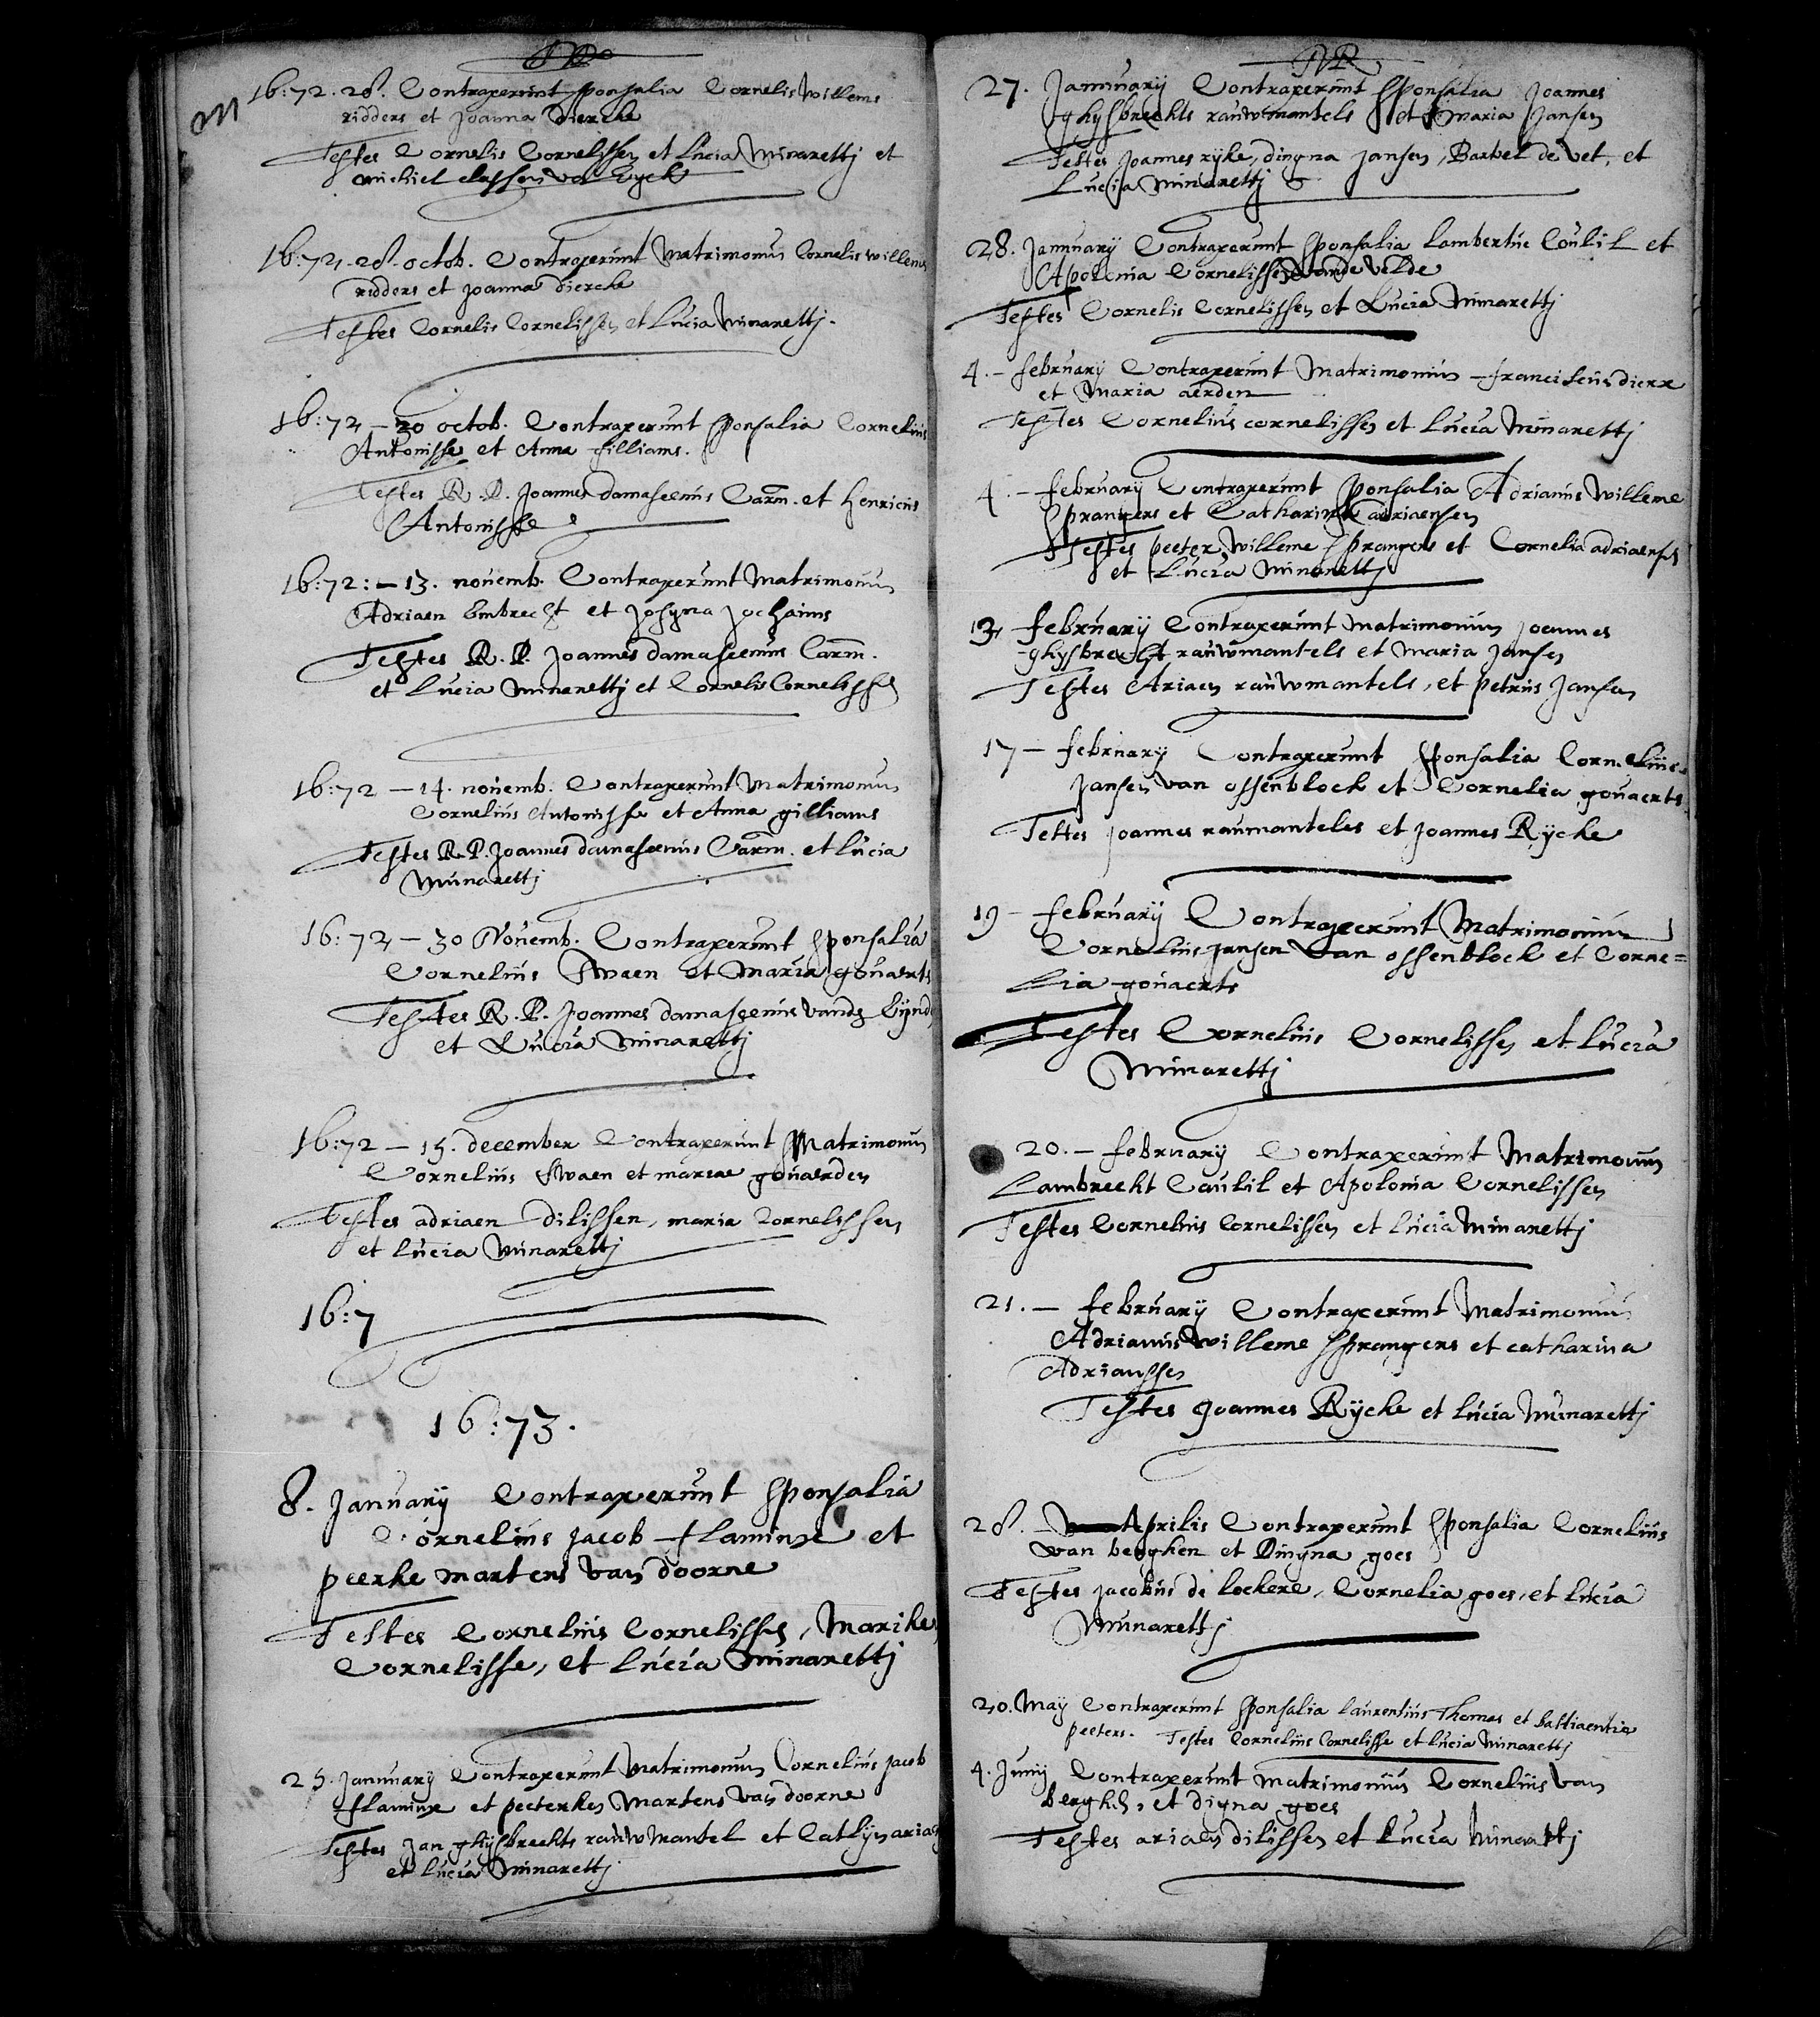 M
16:72. 28. Contraxerunt sponsalia Cornelis Willems
ridders et joanna Dierckx
Testes Cornelis Cornelissen et Lucia Minarettj et
michiel classen van Eyck
16:72. 28. octob. Contraxerunt Matrimoniu Cornelis willems
ridders et joanna dierckx
Testes Cornelis Cornelissen et Lucia Minarettj.
16:72 – 30 octob. Contraxerunt sponsalia Cornelius
Antonisse et Anna gilliams.
Testes R. P. Joannes damascenus Carm. et Henricus
Antonisse
16:72: – 13. nouemb. Contraxerunt Matrimoniu
Adriaen Embrecht et josyna jochaims
Testes R. P. Joannes damascenus Carm.
et Lucia Minarettj et Cornelis Cornelissen
16:72 – 14. nouemb. Contraxerunt Matrimoniu
Cornelius Antonisse et Anna gilliams
Testes R. P. Joannes damascenus Carm. et Lucia
Minarettj
16:72 – 30 Nouemb. Contraxerunt sponsalia
Cornelius Swaen et Maria gouaerts
Testes R. P. Joannes damascenus vande Lynde
et Lucia Minarettj
16:72 – 15. december Contraxerunt Matrimoniu
Cornelius Swaen et mariae gouaerden
Testes adriaen dilissen, maria Cornelissen
et Lucia Minarettj
16:7
16:73.
8. January Contraxerunt sponsalia
Cornelius jacob flaminx et
peerke martens van doorne
Testes Cornelius Cornelissen, Mariken
Cornelisse, et Lucia Minarettj
25. Januuary Contraxerunt Matrimoniu Cornelius jacob
flaminx et peeterken Martens van doorne
Testes Jan ghysbrechts rauwMantel et Catlyn ariaens
et Lucia Minarettj
27. Januuary Contraxerunt sponsalia Joannes
ghysbrechts rauwmantels et maria Jansen
Testes Joannes ryke, dingna jansen, Barbel de vet, et
Lucia Minarettj
28. Januuary Contraxerunt sponsalia Lambertus Coulil et
Apolonia Cornelissen vande velde
Testes Cornelis Cornelissen et Lucia Minarettj
4. – february Contraxerunt Matrimonium franciscus dierx
et Maria aerden
Testes Cornelius cornelissen et Lucia Minarettj
4. – february Contraxerunt sponsalia Adrianus Willeme
sprangers et Catharina adriaensen
Testes peeter Willeme sprangers et Cornelia adriaensen
et Lucia Minarettj
13 february Contraxerunt Matrimonium joannes
ghysbrecht rauwmantels et Maria Jansen
Testes Ariaen rauwmantels, et petrus Jansen
17 – february Contraxerunt sponsalia Cornelius
jansen van ossenblock et Cornelia gouaerts
Testes joannes raumanteles et joannes Rycke
19 – february Contraxerunt Matrimonium
Cornelius jansen van ossenblock et Corne=
lia gouaerts
Testes Cornelius Cornelissen et Lucia
Minarettj
20. – february Contraxerunt Matrimonium
Lambrecht Caulil et Apolonia Cornelissen
Testes Cornelius Cornelissen et Lucia Minarettj
21. – february Contraxerunt Matrimoniu
Adrianus Willeme sprangers et catharina
Adriansen
Testes Joannes Rycke et Lucia Minarettj
28. Aprilis Contraxerunt sponsalia Cornelius
van berghen et Dingna goes
Testes jacobus de lockere, Cornelia goes, et Lucia
Minarettj
20. May Contraxerunt sponsalia Laurentius Thomas et bastiaentie
peeters. Testes Cornelius Cornelisse et Lucia Minarettj
4. Juny Contraxerunt Matrimonium Cornelius van
berghen, et digna goes
Testes ariaen dilissen et Lucia Minarettj